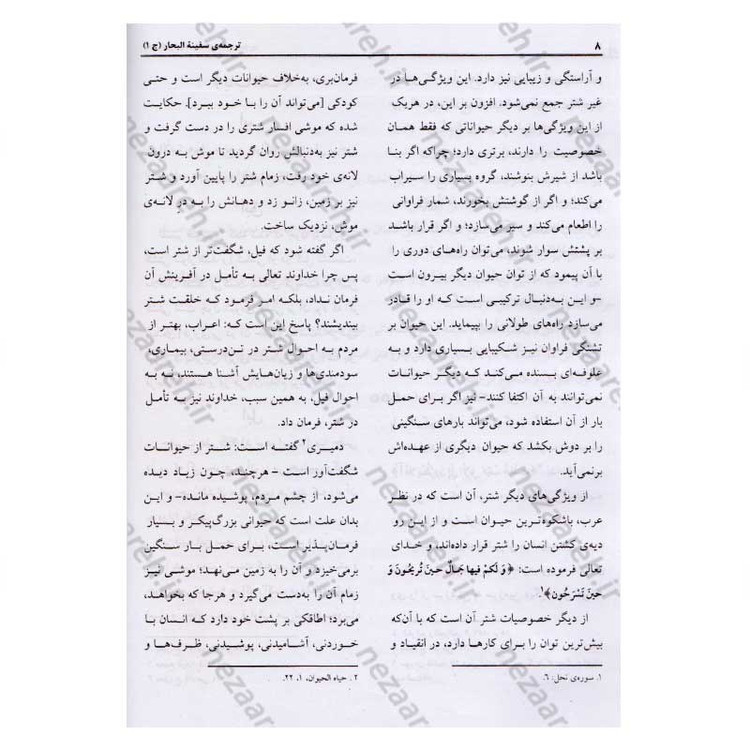 ۸
ترجمه‌ی سفینة البحار (ج ۱)
و آراستگی و زیبایی نیز دارد. این ویژگی‌ها در
غیر شتر جمع نمی‌شود. افزون بر این، در هریک
از این ویژگی‌ها بر دیگر حیواناتی که فقط همان
خصوصیت را دارند، برتری دارد؛ چراکه اگر بنا
باشد از شیرش بنوشند، گروه بسیاری را سیراب
می‌کند؛ و اگر از گوشتش بخورند، شمار فراوانی
را اطعام می‌کند و سیر می‌سازد؛ و اگر قرار باشد
بر پشتش سوار شوند، می‌توان راه‌های دوری را
با آن پیمود که از توان حیوان دیگر بیرون است
-و این به‌دنبال ترکیبی است که او را قادر
می‌سازد راه‌های طولانی را بپیماید. این حیوان بر
تشنگی فراوان نیز شکیبایی بسیاری دارد و به
علوفه‌ای بسنده می‌کند که دیگر حیوانات
نمی‌توانند به آن اکتفا کنند- نیز اگر برای حمل
بار از آن استفاده شود، می‌تواند بارهای سنگینی
را بر دوش بکشد که حیوان دیگری از عهده‌اش
برنمی‌آید.
از ویژگی‌های دیگر شتر، آن است که در نظر
عرب، باشکوه‌ترین حیوان است و از این رو
دیه‌ی کشتن انسان را شتر قرار داده‌اند، و خدای
تعالی فرموده است: ﴿وَ لَكُمْ فيها جَمالٌ حينَ تُريحُونَ وَ
حينَ تَسْرَحُون﴾۱.
از دیگر خصوصیات شتر آن است که با آن‌که
بیش‌ترین توان را برای کارها دارد، در انقیاد و
۱. سوره‌ی نحل: ۶.
فرمان‌بری، به‌خلاف حیوانات دیگر است و حتی
کودکی [می‌تواند آن را با خود ببرد]. حکایت
شده که موشی افسار شتری را در دست گرفت و
شتر نیز به‌دنبالش روان گردید تا موش به درون
لانه‌ی خود رفت، زمام شتر را پایین آورد و شتر
نیز بر زمین، زانو زد و دهانش را به در لانه‌ی
موش، نزدیک ساخت.
اگر گفته شود که فیل، شگفت‌تر از شتر است،
پس چرا خداوند تعالی به تأمل در آفرینش آن
فرمان نداد، بلکه امر فرمود که خلقت شتر
بیندیشند؟ پاسخ این است که: اعراب، بهتر از
مردم به احوال شتر در تن‌درستی، بیماری،
سودمندی‌ها و زیان‌هایش آشنا هستند، نه به
احوال فیل، به همین سبب، خداوند نیز به تأمل
در شتر، فرمان داد.
دمیری۲ گفته است: شتر از حیوانات
شگفت‌آور است - هرچند، چون زیاد دیده
می‌شود، از چشم مردم، پوشیده مانده- و این
بدان علت است که حیوانی بزرگ‌پیکر و بسیار
فرمان‌پذیر است، برای حمل بار سنگین
برمی‌خیزد و آن را به زمین می‌نهد؛ موشی نیز
زمام آن را به‌دست می‌گیرد و هرجا که بخواهد،
می‌برد؛ اطاقکی بر پشت خود دارد که انسان با
خوردنی، آشامیدنی، پوشیدنی، ظرف‌ها و
۲. حیاه الحیوان، ۱، ۲۲.
nezaareh.ir